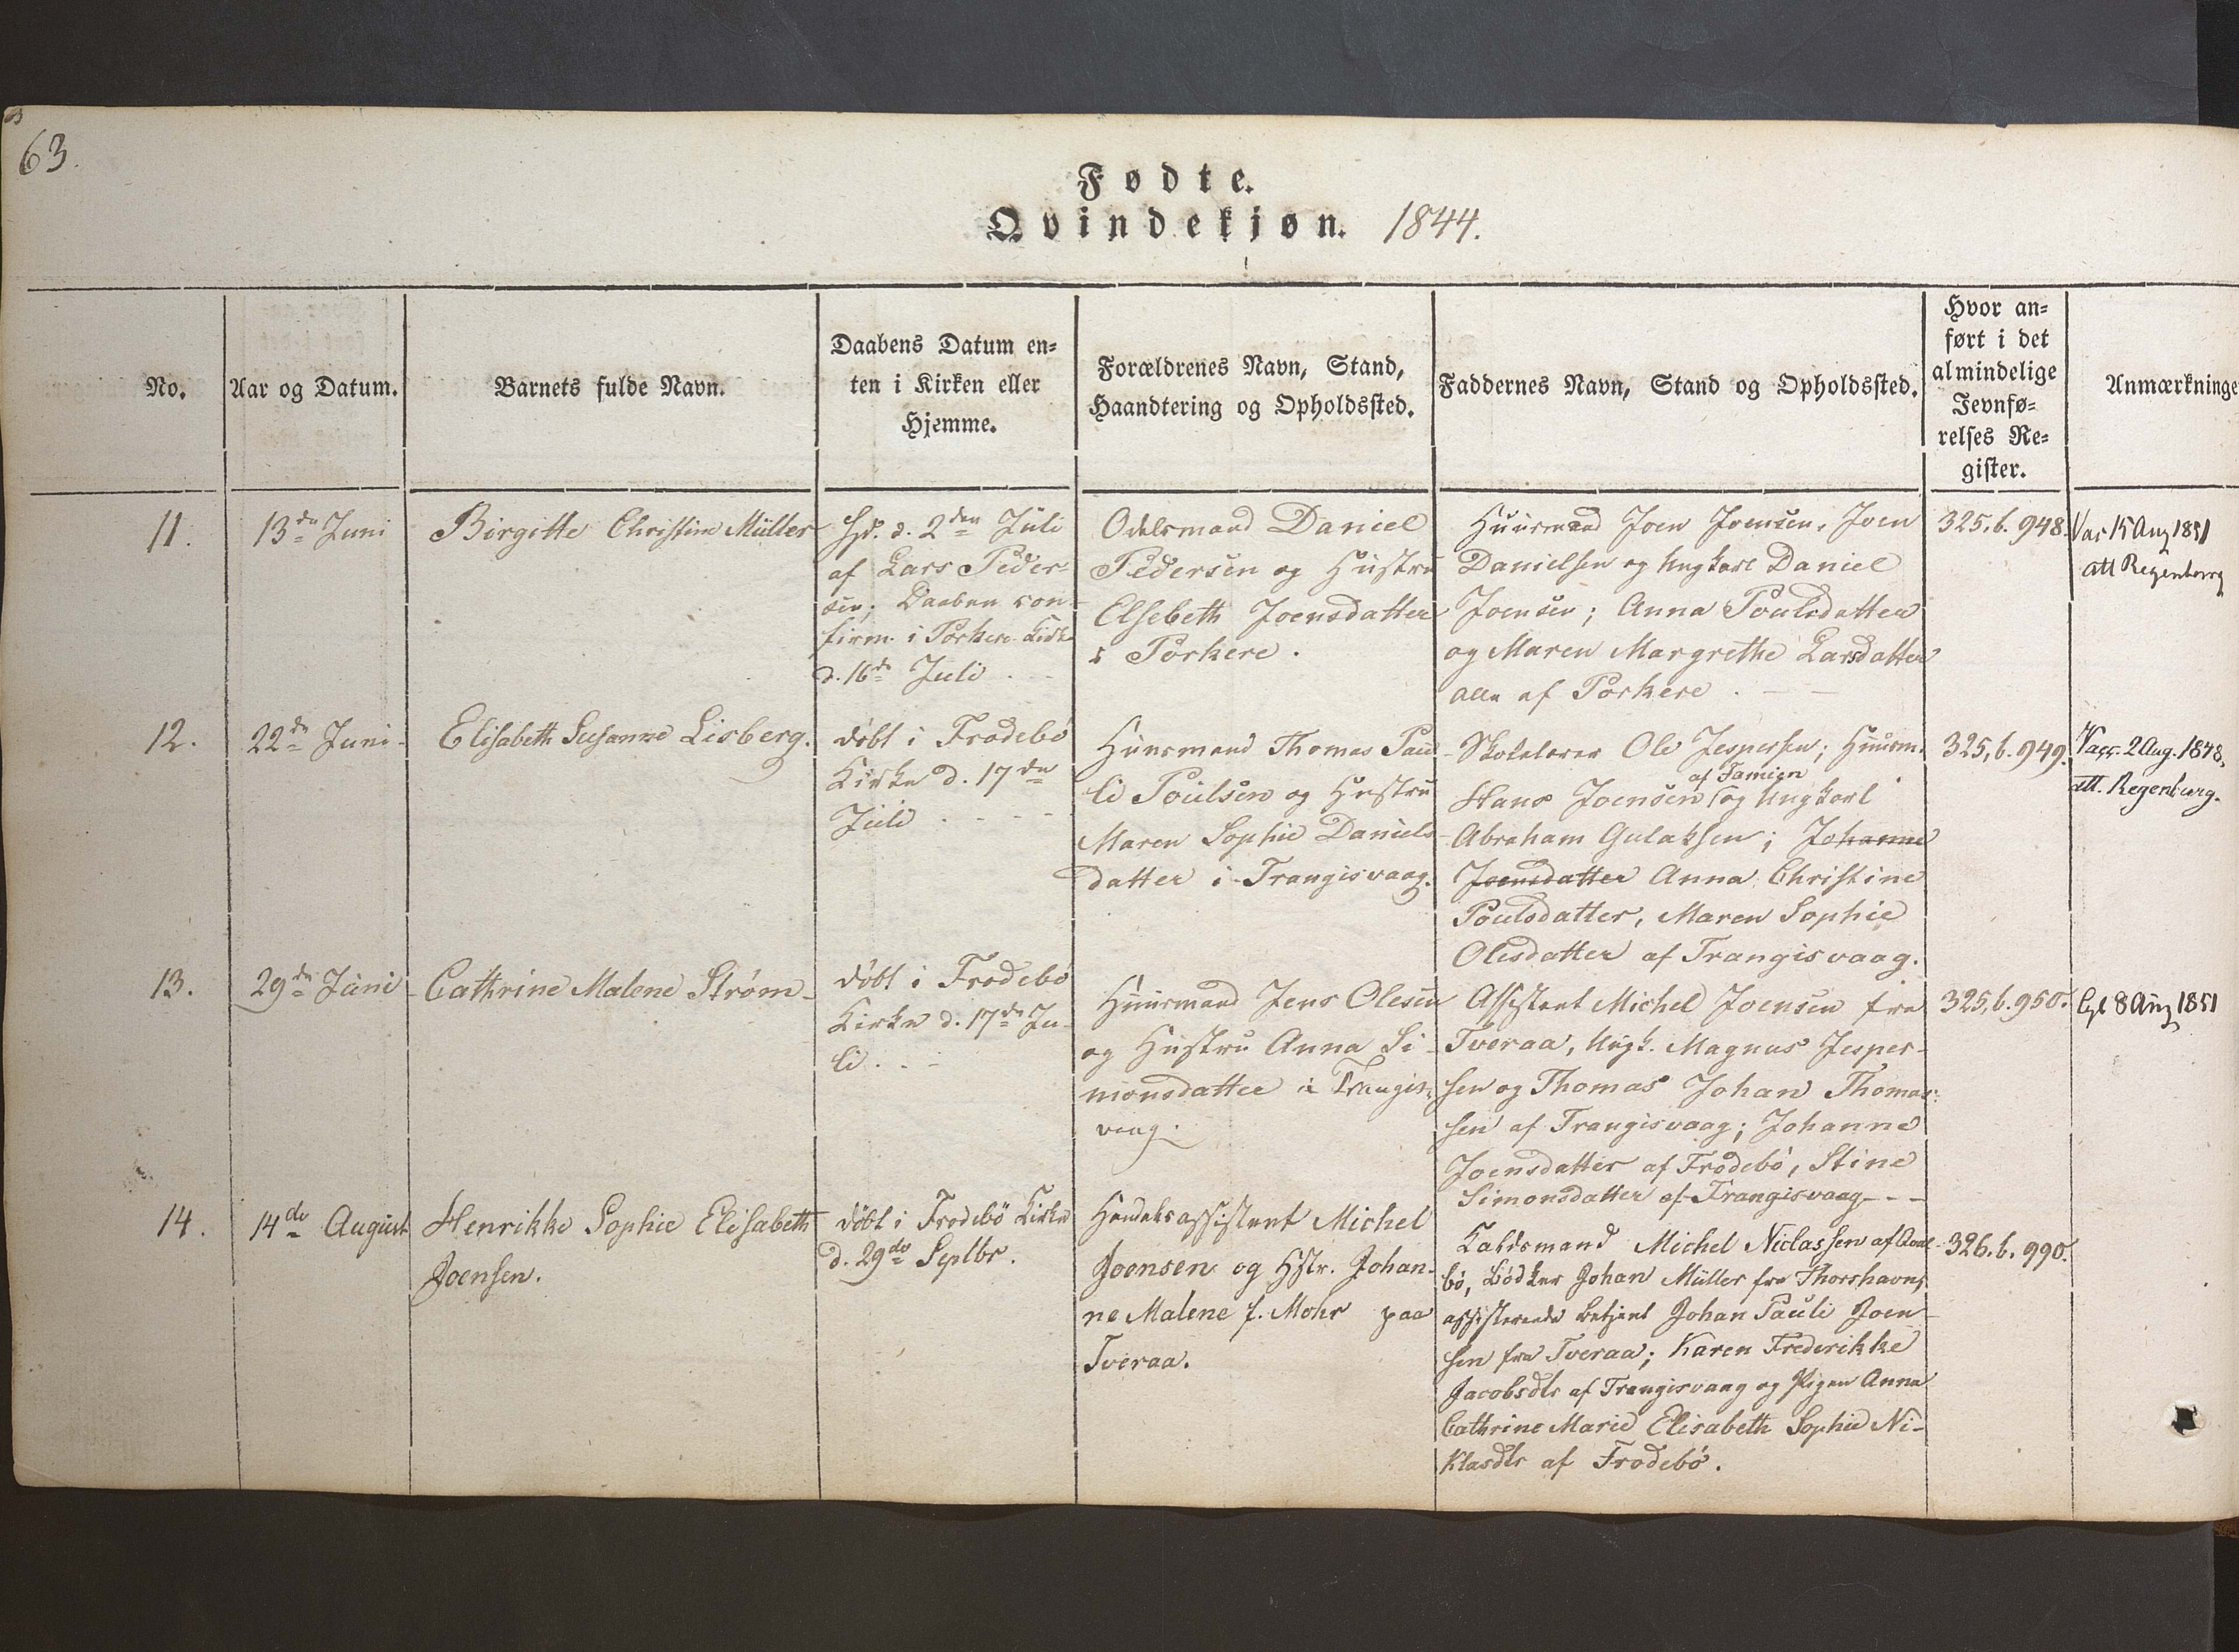 63.
Fødte.
Qvindekjøn. 1844.
No.
Aar og Datum.
Barnets fulde Navn.
Daabens Datum en=
ten i Kirken eller
Hjemme.
Forældrenes Navn, Stand,
Haandtering og Opholdssted.
Faddernes Navn, Stand og Opholdssted.
Hvor an=
ført i det
almindelige
Jevnfø=
relses Re=
gister.
Anmærkninge
11.
13de Juni
Birgitte Christine Müller
Hjd. d. 2den Juli
af Lars Peder-
sen; Daaben con-
firm. i Porkere Kirke
d. 16de Juli
Odelsmand Daniel
Pedersen og Hustru
Elsebeth Joensdatter
i Porkere.
Huusmand Joen Joensen, Joen
Danielsen og Ungkarl Daniel
Joensen; Anna Poulsdatter
og Maren Margrethe Larsdatter
alle af Porkere.
325, b. 948.
Vac 15 Aug 1851
att Regenburg
12.
22de Juni
Elisabeth Susanne Lisberg.
døbt i Frodebö
Kirke d. 17de
Juli
Huusmand Thomas Pau
li Poulsen og Hustru
Maren Sophie Daniels-
datter i Trangisvaag.
Skolelærer Ole Jespersen; Huusm.
af Famien
Hans Joensen og Ungkarl
Abraham Gulaksen; Johanne
Joensdatter Anna Christine
Poulsdatter, Maren Sophie
Olesdatter af Trangisvaag.
325, b. 949.
Vacc. 2 Aug. 1848,
att. Regenburg.
13.
29de Juni
Cathrine Malene Strøm
døbt i Frodebö
Kirke d. 17de Ju-
li
Huusmand Jens Olesen
og Hustru Anna Si-
monsdatter i Trangis-
vaag.
Assistent Michel Joensen fra
Tveraa, Ungk. Magnus Jesper-
sen og Thomas Johan Thomas-
sen af Trangisvaag; Johanne
Joensdatter af Frodebö, Stine
Simonsdatter af Trangisvaag
325, b. 950.
8 Aug 1851
14.
14de August
Henrikke Sophie Elisabeth
Joensen.
döbt i Frodebö Kirke
d. 29de Septbr.
Handelsassistent Michel
Joensen og Hstr. Johan-
ne Malene f. Mohr paa
Tveraa.
Michel Niclassen af Qval-
bö, Bödker Johan Müller fra Thorshavn,
assisterende Betjent Johan Pauli Joen-
sen fra Tveraa; Karen Frederikke
Jacobsdtr af Trangisvaag og Pigen Anna
Cathrine Marie Elisabeth Sophie Ni-
klasdtr af Frodebö.
326. b. 990.